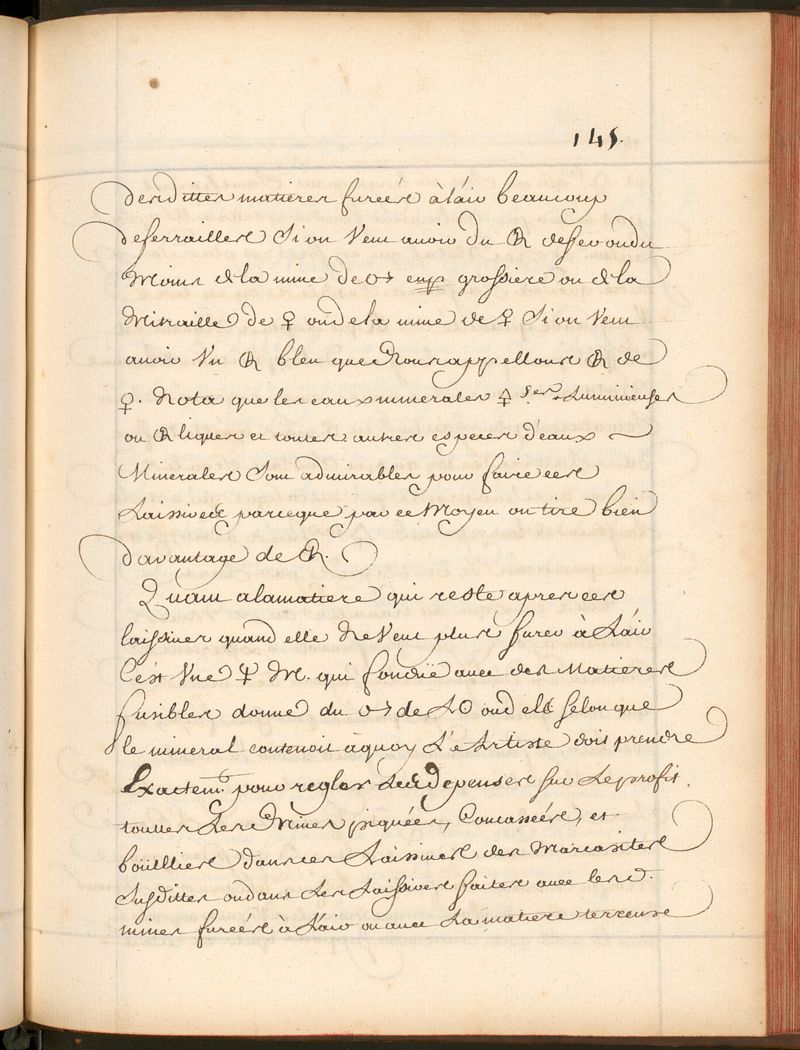 145.
desdittes matieres fureés à láir beaucoup
deferrailles Si on Veut avoir du desseoudu
Moins de la mine de ♂ grossiere ou de la
Mitraille de ♀ ou de la mine de ♀ Si on Veut
avoir Vn bleu que Nous appellons de
♀. Nota que les eaux minerales Luminieuses
ou et toutes autres especes d'eaux
Minerales Sont admirables pour faire ces
Laissives parceque par ce Moyen on tire bien
davantage de
Quant a la matiere qui reste apres ces
laissives quand elle Ne Veut plus à L'air
C'est Vne M. qui fondüe avec des Matieres
fusibles donne du ♂ de selon que
le mineral contenoit à quoy L'Artiste doit prendre
Exactemt. pour regler Les depenses sur Le profit.
touttes Les Mines piquées, Concassées, et
boüillies dans ces Laissives des Marcasites
Susdittes ou dans Les Laissives faites avec lesd.
mines fureés à L'air ou avec La matiere terreuse